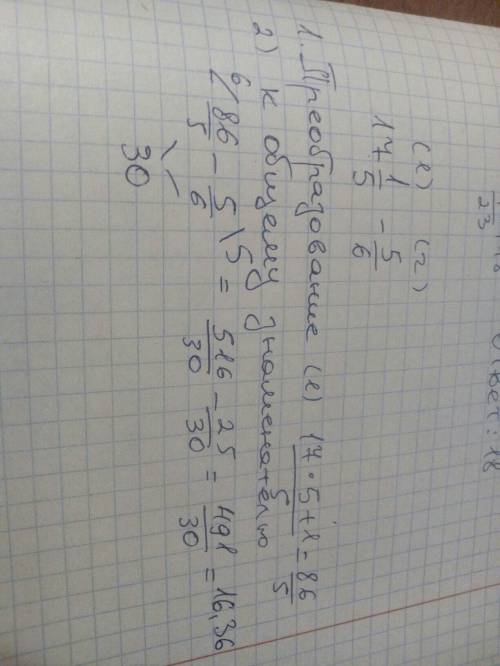 23
Ответ: 18
(1) (2)
17 1/5 - 5/6
1. Преобразование (1) (17·5+1)/5 = 86/5
2) к общему знаменателю
6/ 86/5 - 5/6 \5 = 516/30 - 25/30 = 491/30 = 16,36
30